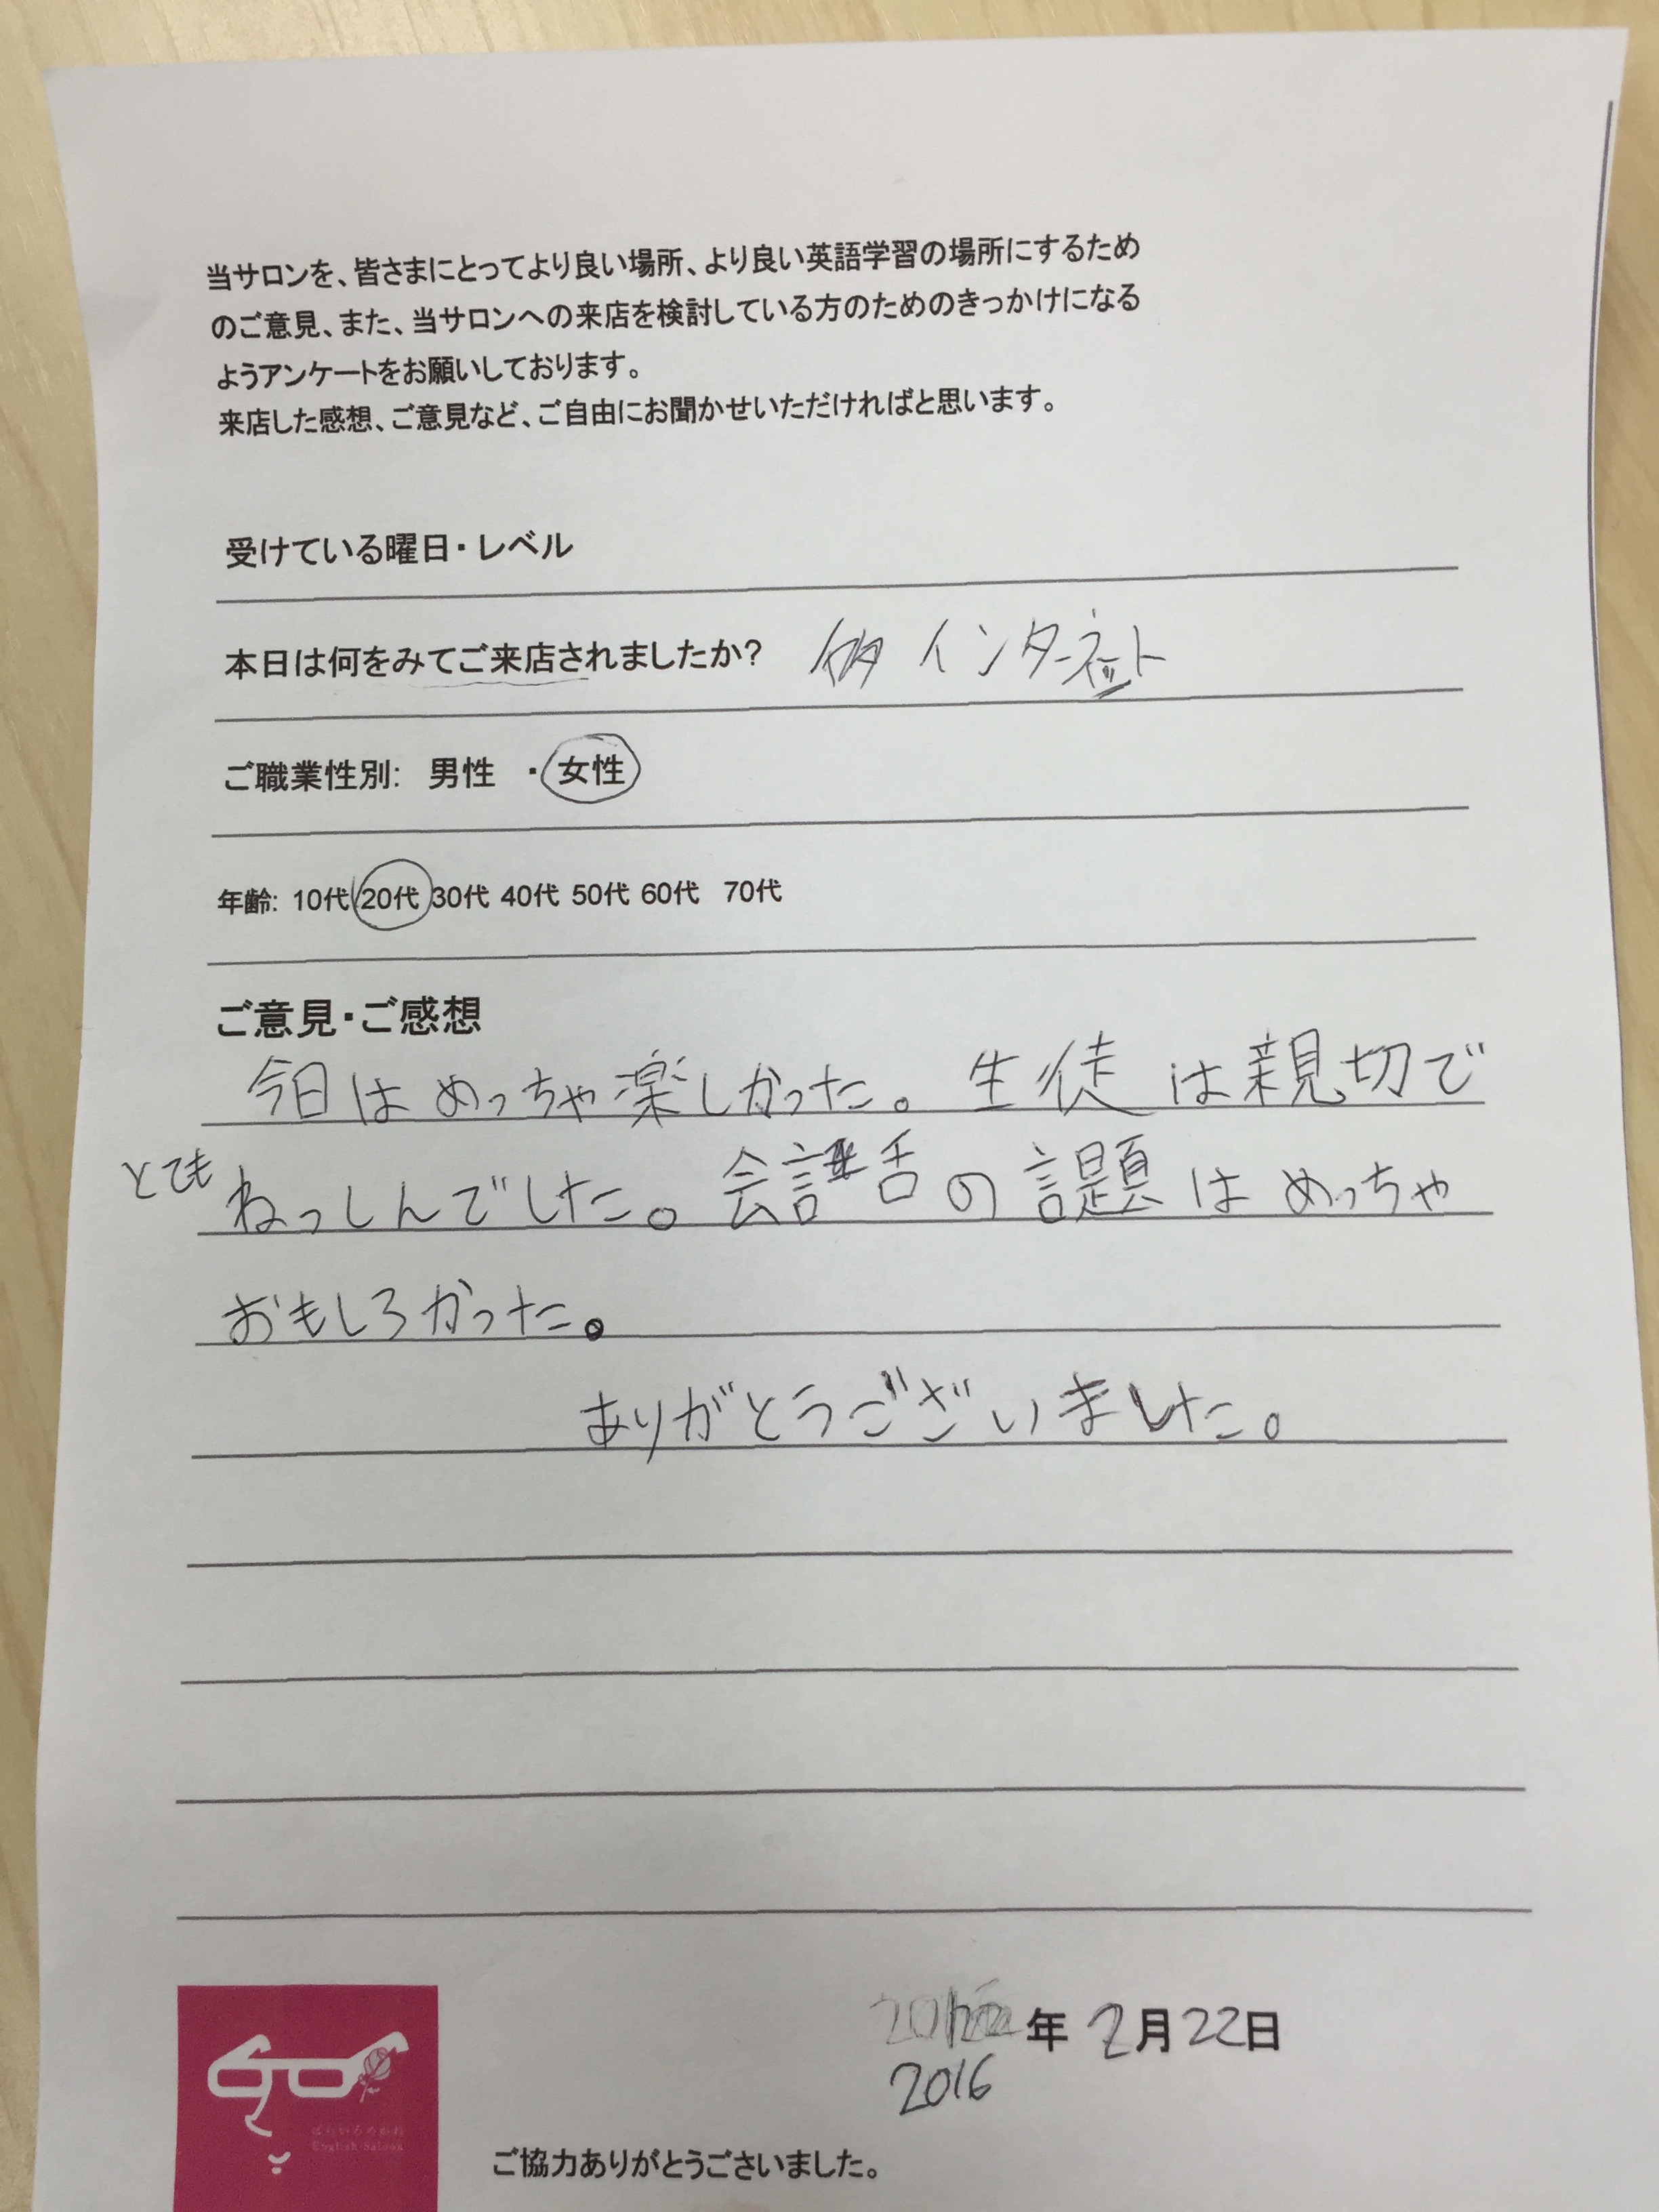 当サロンを、皆さまにとってより良い場所、より良い英語学習の場所にするため
のご意見、また、当サロンへの来店を検討している方のためのきっかけになる
ようアンケートをお願いしております。
来店した感想、ご意見など、ご自由にお聞かせいただければと思います。
受けている曜日・レベル
本日は何をみてご来店されましたか? インターネット
ご職業性別: 男性 ・女性
年齢: 10代 20代 30代 40代 50代 60代 70代
ご意見・ご感想
今日はめっちゃ楽しかった。生徒は親切で
とても ねっしんでした。会話の話題はめっちゃ
おもしろかった。
ありがとうございました。
年 2月22日
2016
ばらいろめがね
English Saloon
ご協力ありがとうごさいました。